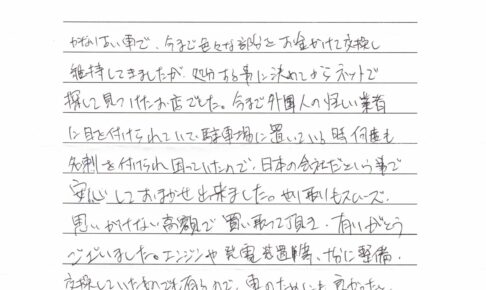 かなり古い車で、今まで色々な部分をお金かけて交換し
維持してきましたが、処分する事に決めてからネットで
探して見つけたお店でした。今まで外国人の怪しい業者
に目を付けられていて、駐車場に置いている時何度も
名刺を付けられ困っていたので、日本の会社だという事で
安心しておまかせ出来ました。やり取りもスムーズ、
思いがけない高額で買い取って頂き、有りがとう
ございました。エンジンや発電装置等、十分に整備・
交換していたものでも有るので、車のためにも良かった